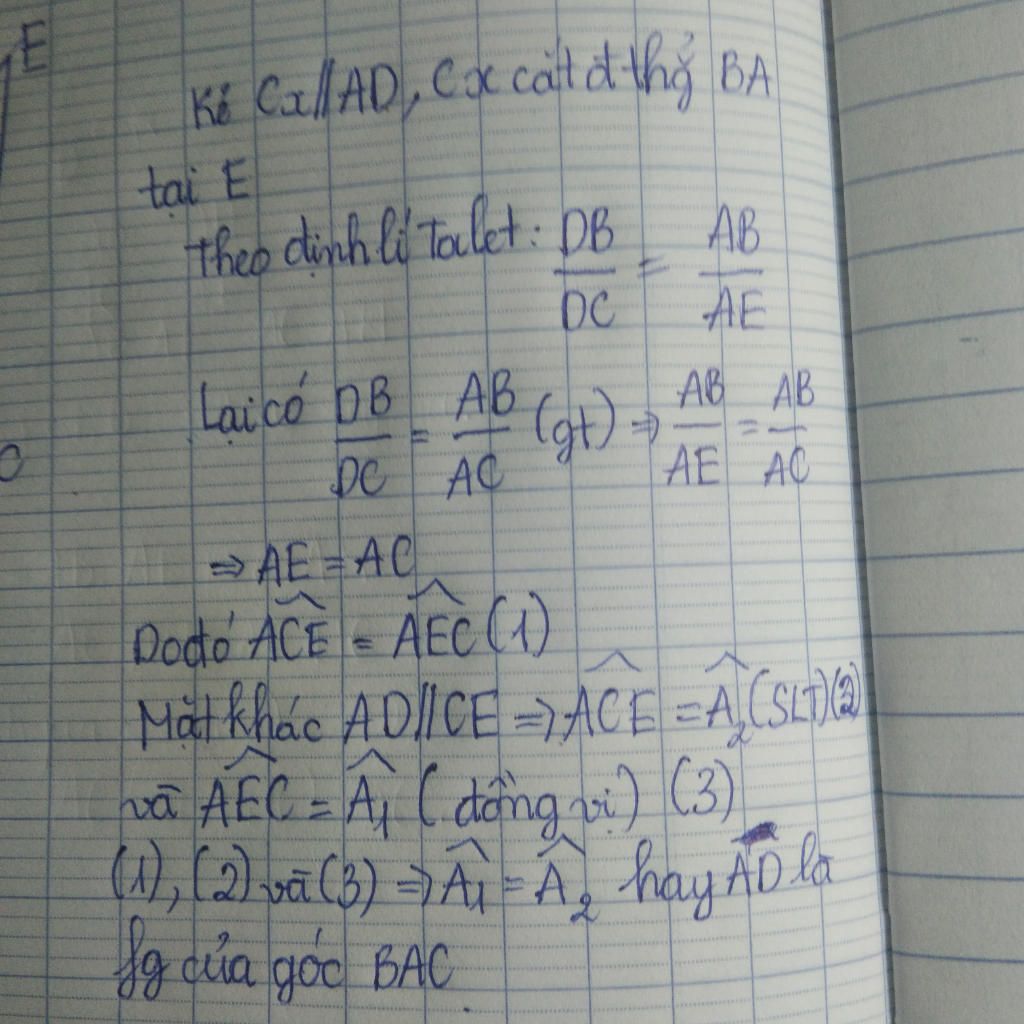 E
Kẻ Cx//AD, Cx cắt đ thg BA
tại E
Theo định lí Talet: DB/DC = AB/AE
Lại có DB/DC = AB/AC (gt) ⇒ AB/AE = AB/AC
⇒ AE = AC
Do đó \widehat{ACE} = \widehat{AEC} (1)
Mặt khác AD//CE ⇒ \widehat{ACE} = \widehat{A}₂ (SLT) (2)
và \widehat{AEC} = \widehat{A}₁ (đồng vị) (3)
(1), (2) và (3) ⇒ \widehat{A}₁ = \widehat{A}₂ hay AD là
fg của góc BAC